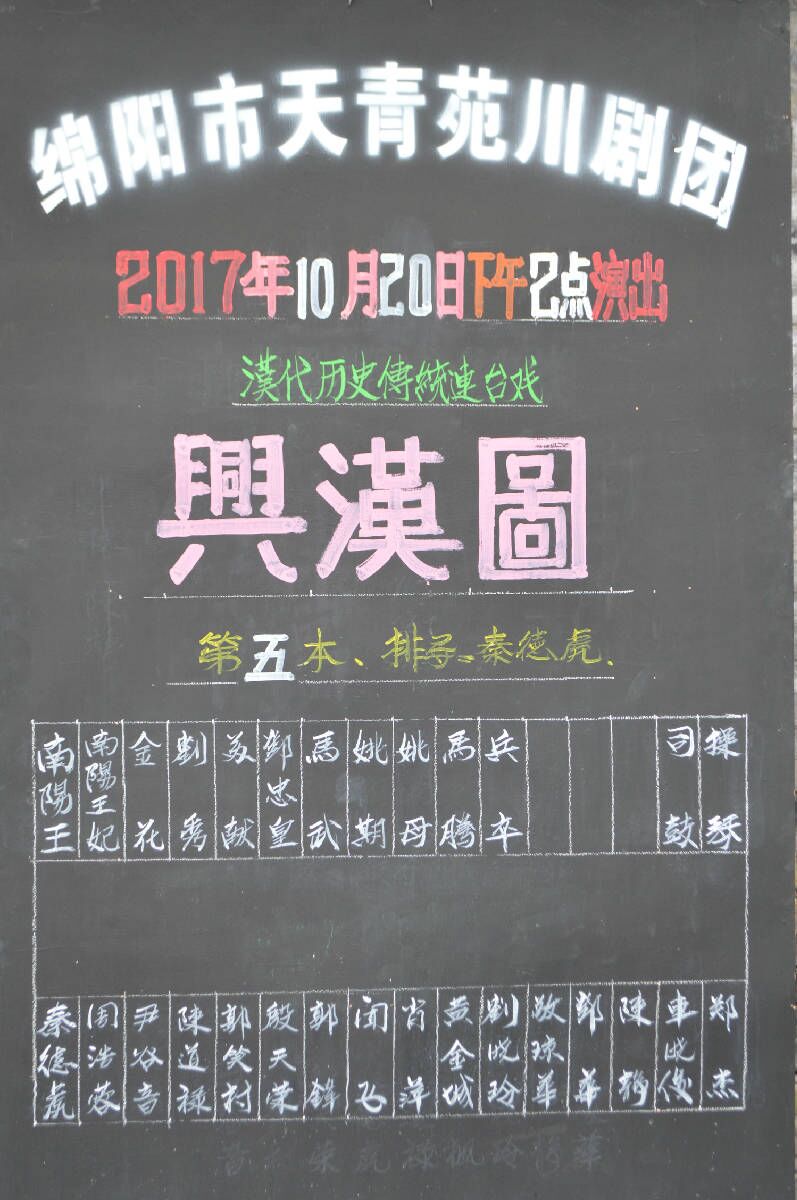 绵阳市天青苑川剧团
2017年10月20日下午2点演出
漢代历史傳統連台戏
興漢圖
第五本、排孖:秦德虎.
南陽王
南陽王妃
金花
劉秀
苏献
鄧忠皇
馬武
姚期
姚母
馬騰
兵卒
司鼓
操琴
秦德虎
周浩蓉
尹谷音
陳道禄
郭笑村
殷天荣
郭鋒
闻飞
肖萍
黄金城
劉晓玲
敬琼華
鄧華
陳静
車晓俊
郑杰